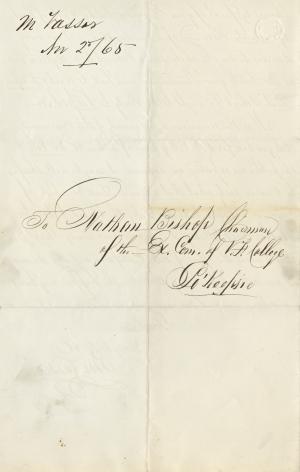 M Vassar
Nov 27/65
To Nathan Bishop Chairman
of the Ex. Com. of V. F. College
Po'Keepsie